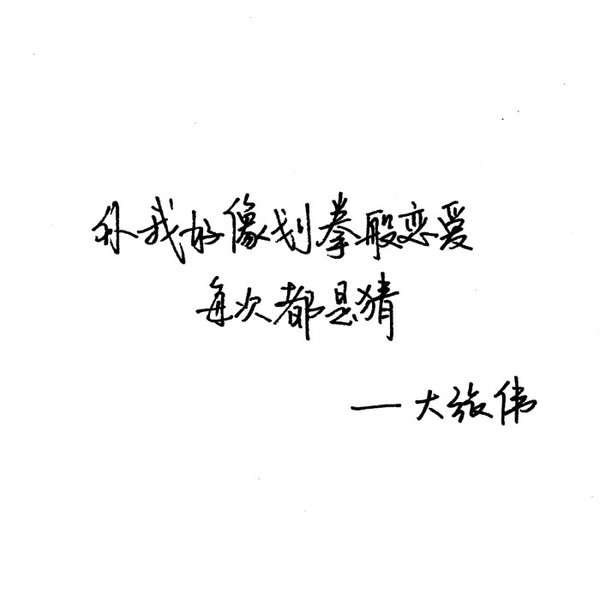 你我好像划拳般恋爱
每次都是猜
——大张伟